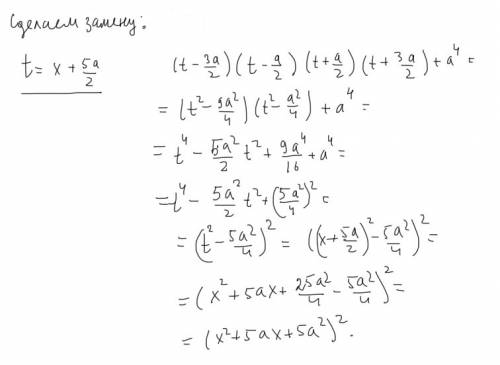 Сделаем замену:
t = x + 5a/2
(t - 3a/2)(t - a/2)(t + a/2)(t + 3a/2) + a⁴ =
= (t² - 9a²/4)(t² - a²/4) + a⁴ =
= t⁴ - 5a²/2 t² + 9a⁴/16 + a⁴ =
= t⁴ - 5a²/2 t² + (5a²/4)² =
= (t² - 5a²/4)² = ((x + 5a/2)² - 5a²/4)² =
= (x² + 5ax + 25a²/4 - 5a²/4)² =
= (x² + 5ax + 5a²)².